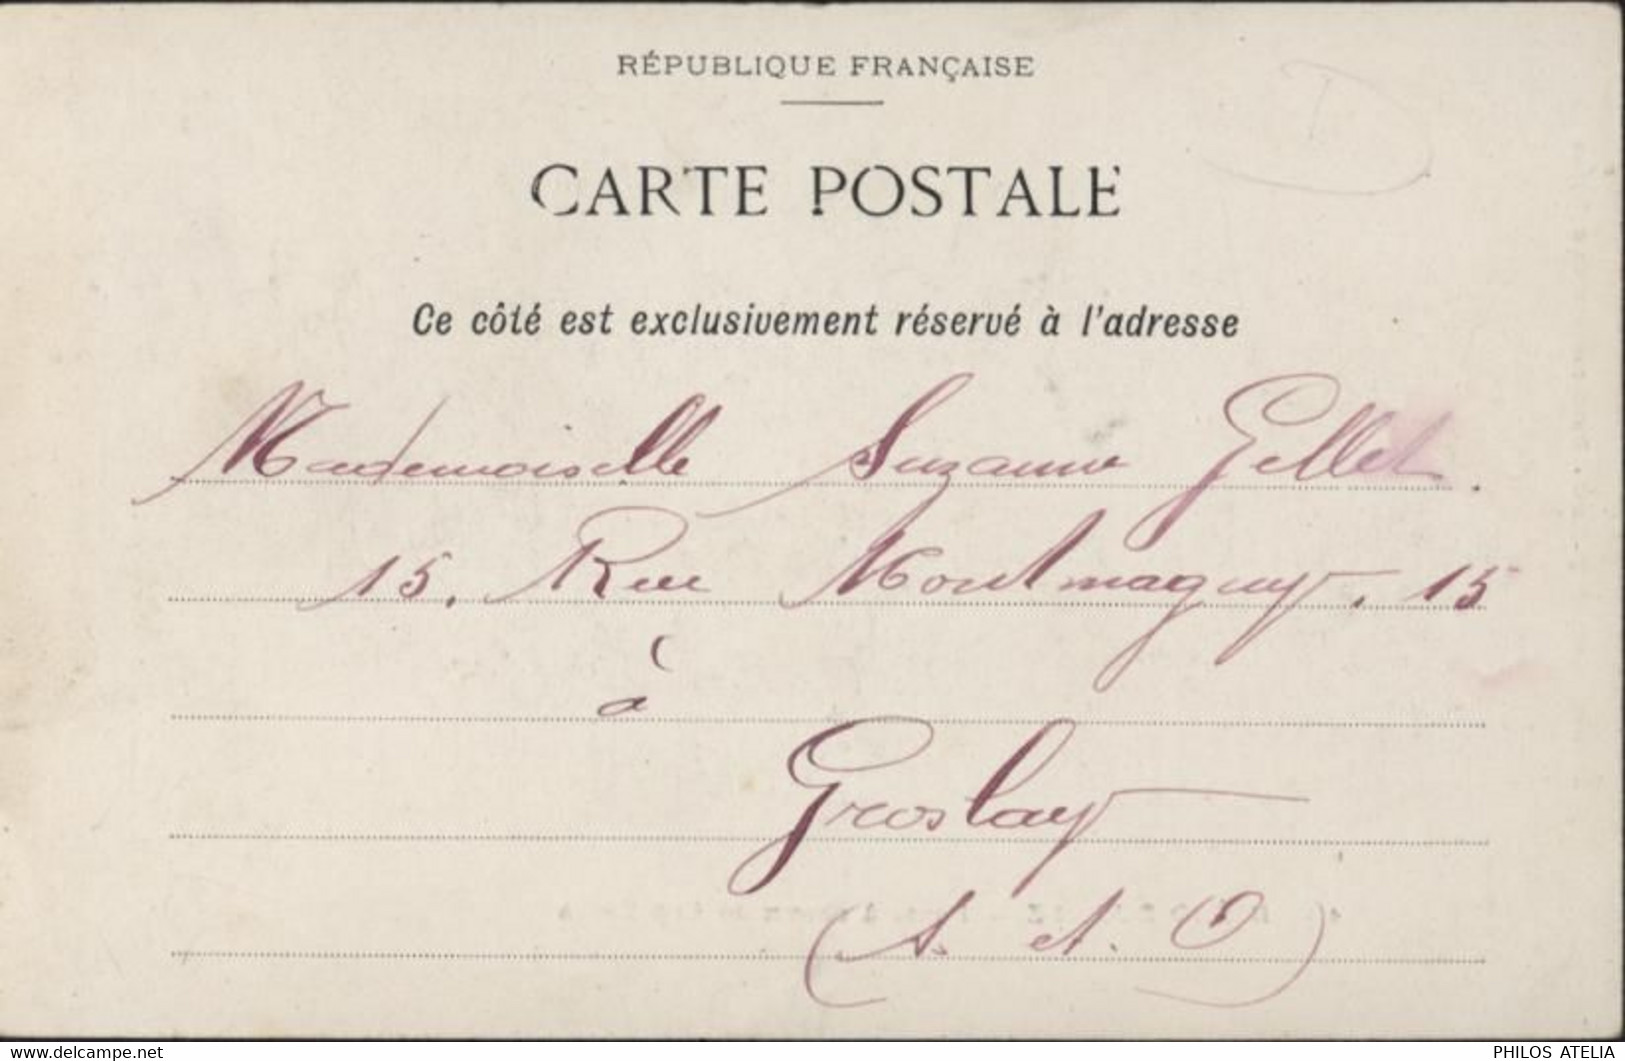 RÉPUBLIQUE FRANÇAISE
CARTE POSTALE
Ce côté est exclusivement réservé à l'adresse
Mademoiselle Suzanne Gellet.
15. Rue Montmagny. 15
à
Groslay
(S. et. O)
www.delcampe.net
PHILOS ATELIA